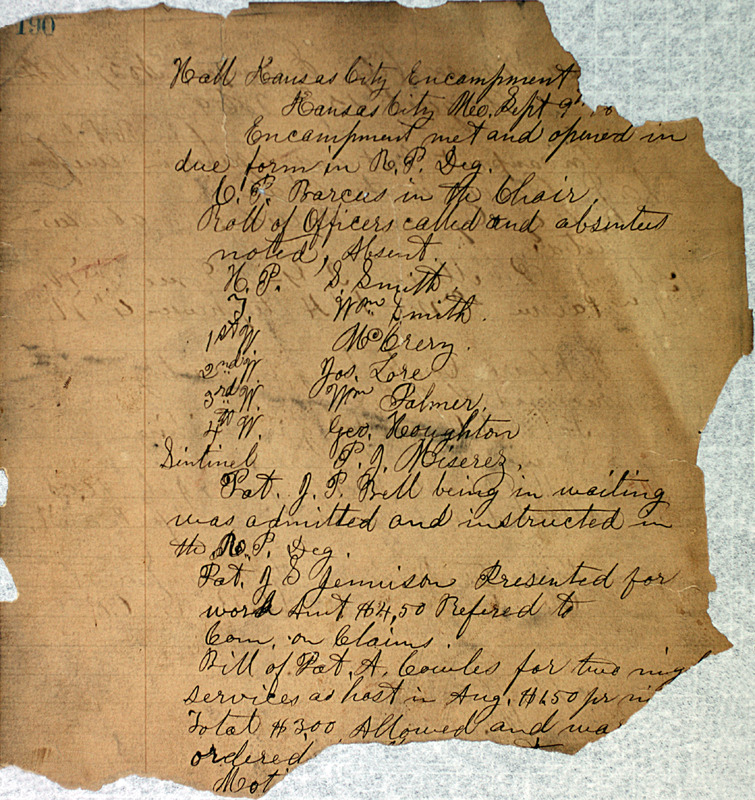 190
Hall Kansas City Encampment
Kansas City Mo, Sept 9th
Encampment met and opened in
due form in R. P. Deg.
C. P. Barcus in the Chair.
Roll of Officers called and absentees
noted, Absent.
H. P. S. Smith.
T. Wm Smith.
1st W McCrery.
2nd W Jos. Lore
3rd W Wm Palmer.
4th W. Geo. Houghton
Sintinel P. J. Miserez.
Pat. J. P. Bell being in waiting
was admitted and instructed in
the R. P. Deg.
Pat. J S Jennison Presented for
work Amt $4,50 Refered to
Com. on Claims.
Bill of Pat. A. Cowles for two
services as host in Aug. $1.50 pr
Total $3.00 Allowed and
ordered